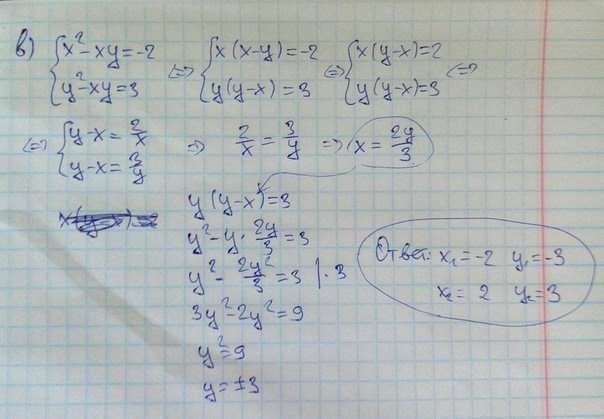 в) { x² - xy = -2 ; y² - xy = 3 <=> { x(x-y) = -2 ; y(y-x) = 3 <=> { x(y-x) = 2 ; y(y-x) = 3 <=>
<=> { y-x = 2/x ; y-x = 3/y => 2/x = 3/y => x = 2y/3
y(y-x) = 3
y² - y · 2y/3 = 3
y² - 2y²/3 = 3 | · 3
3y² - 2y² = 9
y² = 9
y = ±3
Ответ: x₁ = -2 y₁ = -3
x₂ = 2 y₂ = 3